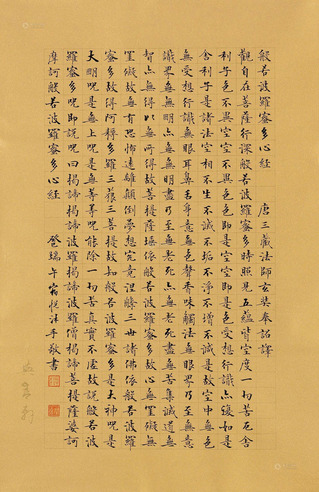 般若波羅蜜多心經　唐三藏法師玄奘奉詔譯
觀自在菩薩行深般若波羅蜜多時照見五蘊皆空度一切苦厄舍
利子色不異空空不異色色即是空空即是色受想行識亦復如是
舍利子是諸法空相不生不滅不垢不淨不增不減是故空中無色
無受想行識無眼耳鼻舌身意無色聲香味觸法無眼界乃至無意
識界無無明亦無無明盡乃至無老死亦無老死盡無苦集滅道無
智亦無得以無所得故菩提薩埵依般若波羅蜜多故心無罣礙無
罣礙故無有恐怖遠離顛倒夢想究竟涅槃三世諸佛依般若波羅
蜜多故得阿耨多羅三藐三菩提故知般若波羅蜜多是大神呪是
大明呪是無上呪是無等等呪能除一切苦真實不虛故說般若波
羅蜜多呪即說呪曰揭諦揭諦波羅揭諦波羅僧揭諦菩提薩婆訶
摩訶般若波羅蜜多心經
敬書